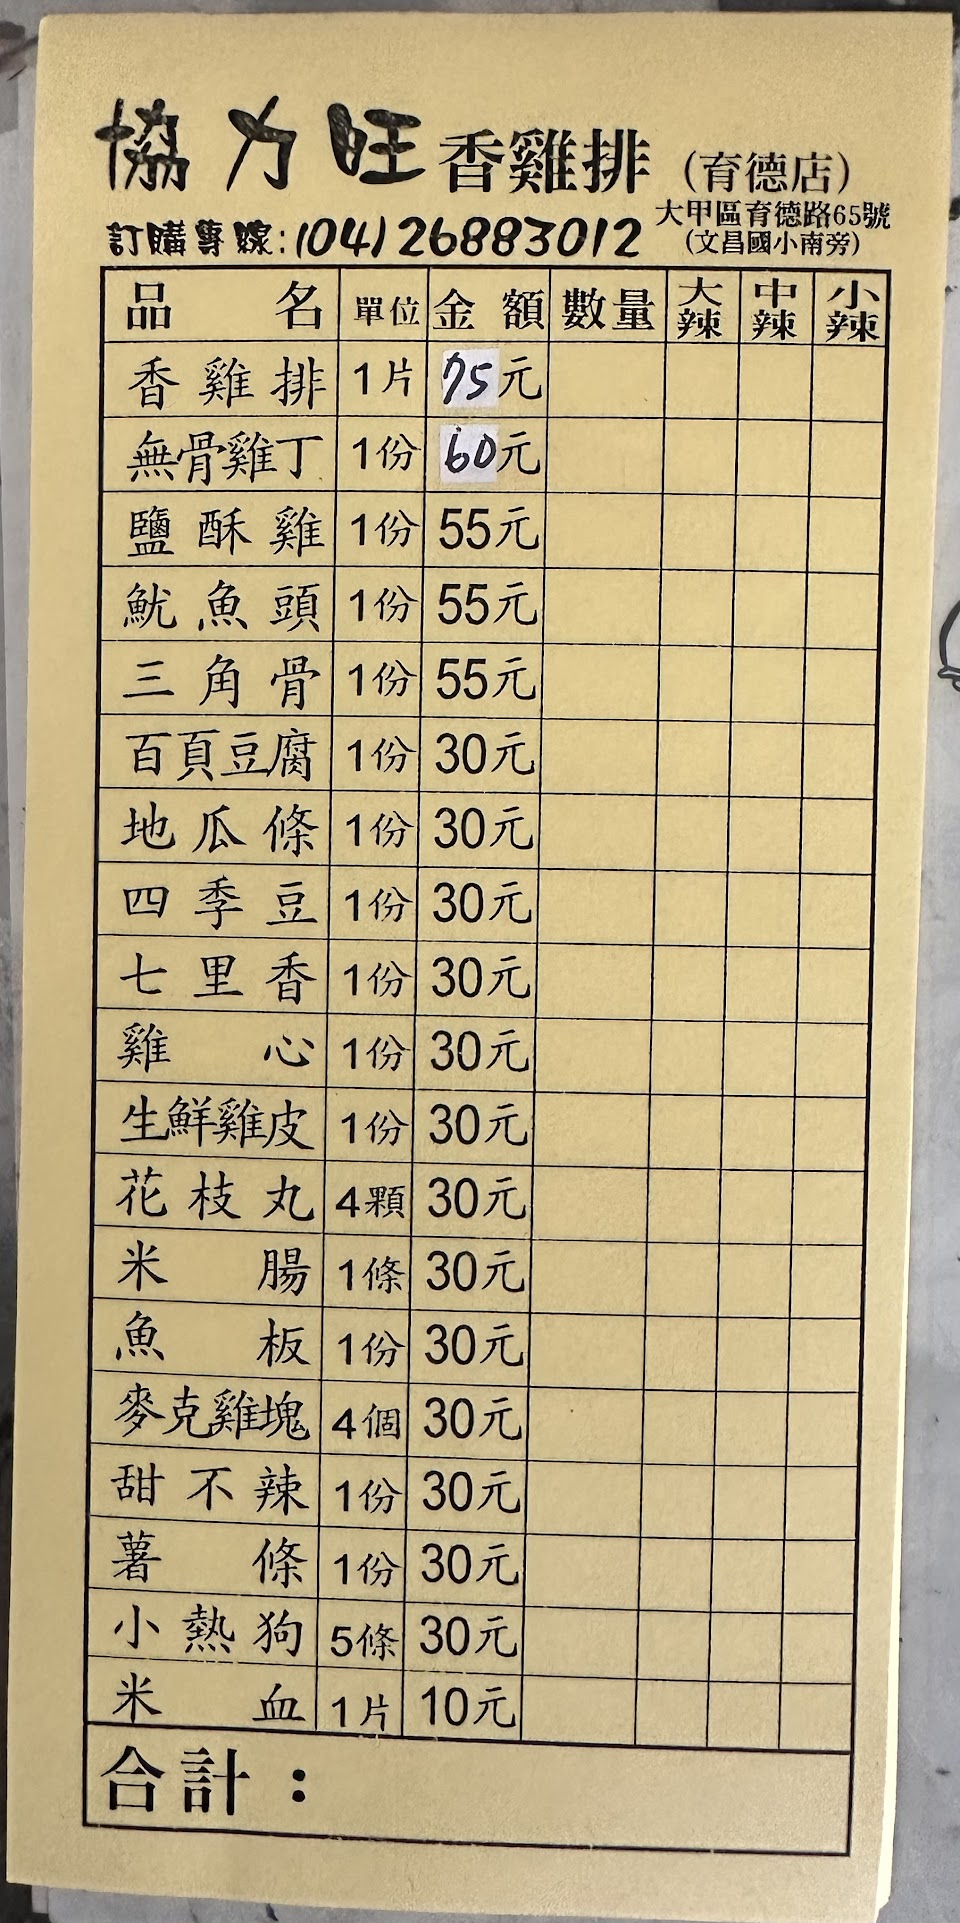 協力旺香雞排(育德店)
訂購專線:(04)26883012
大甲區育德路65號
(文昌國小南旁)
品名 單位 金額 數量 大辣 中辣 小辣
香雞排 1片 75元
無骨雞丁 1份 60元
鹽酥雞 1份 55元
魷魚頭 1份 55元
三角骨 1份 55元
百頁豆腐 1份 30元
地瓜條 1份 30元
四季豆 1份 30元
七里香 1份 30元
雞心 1份 30元
生鮮雞皮 1份 30元
花枝丸 4顆 30元
米腸 1條 30元
魚板 1份 30元
麥克雞塊 4個 30元
甜不辣 1份 30元
薯條 1份 30元
小熱狗 5條 30元
米血 1片 10元
合計：